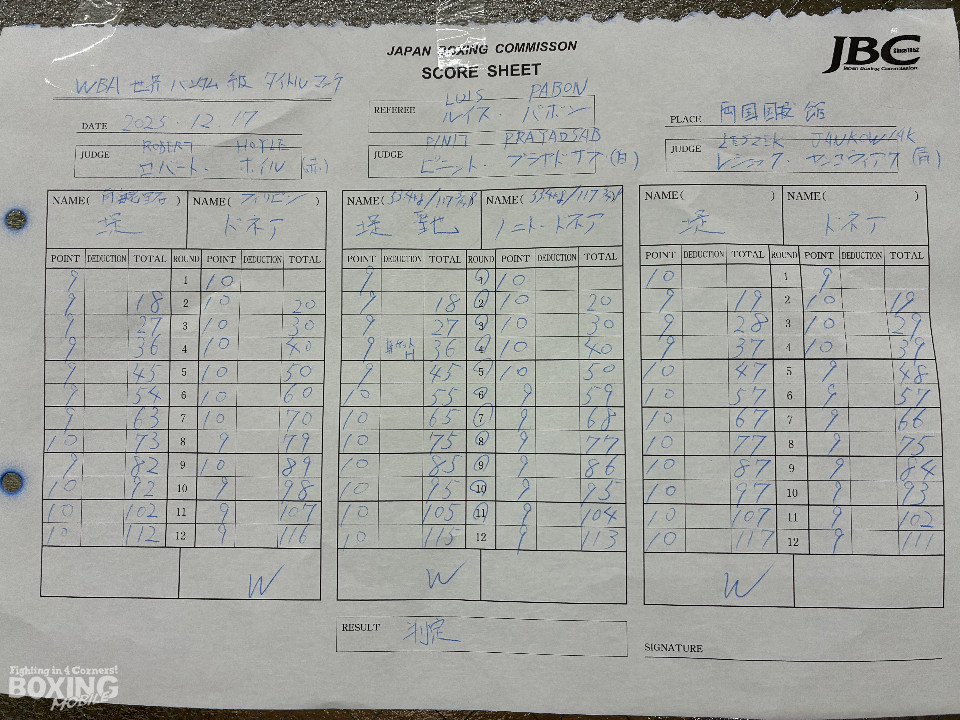 JAPAN BOXING COMMISSON
SCORE SHEET
JBC Since1952
Japan Boxing Commission
WBA 世界バンタム級 タイトルマッチ
DATE 2025.12.17
REFEREE LUIS PABON
ルイス・パボン
PLACE 両国国技館
JUDGE ROBERT HOYLE
ロバート・ホイル (赤)
JUDGE PINIT PRAYADSAB
ピニット・プラヤドサブ (白)
JUDGE LESZEK JANKOWIAK
レシェック・ヤンコヴィアク (青)
NAME( ) NAME(フィリピン) NAME( ) NAME( ) NAME( ) NAME( )
堤 ドネア 堤 聖也 ノニト・ドネア 堤 ドネア
POINT DEDUCTION TOTAL ROUND POINT DEDUCTION TOTAL POINT DEDUCTION TOTAL ROUND POINT DEDUCTION TOTAL POINT DEDUCTION TOTAL ROUND POINT DEDUCTION TOTAL
9 1 10 9 1 10 10 1 9
9 18 2 10 20 9 18 2 10 20 9 19 2 10 19
9 27 3 10 30 9 27 3 10 30 9 28 3 10 29
9 36 4 10 40 9 36 4 10 40 9 37 4 10 39
9 45 5 10 50 9 45 5 10 50 10 47 5 9 48
9 54 6 10 60 10 55 6 9 59 10 57 6 9 57
9 63 7 10 70 10 65 7 9 68 10 67 7 9 66
10 73 8 9 79 10 75 8 9 77 10 77 8 9 75
9 82 9 10 89 10 85 9 9 86 10 87 9 9 84
10 92 10 9 98 10 95 10 9 95 10 97 10 9 93
10 102 11 9 107 10 105 11 9 104 10 107 11 9 102
10 112 12 9 116 10 115 12 9 113 10 117 12 9 111
W W W
RESULT 判定
SIGNATURE
Fighting in 4 Corners!
BOXING
MOBILE